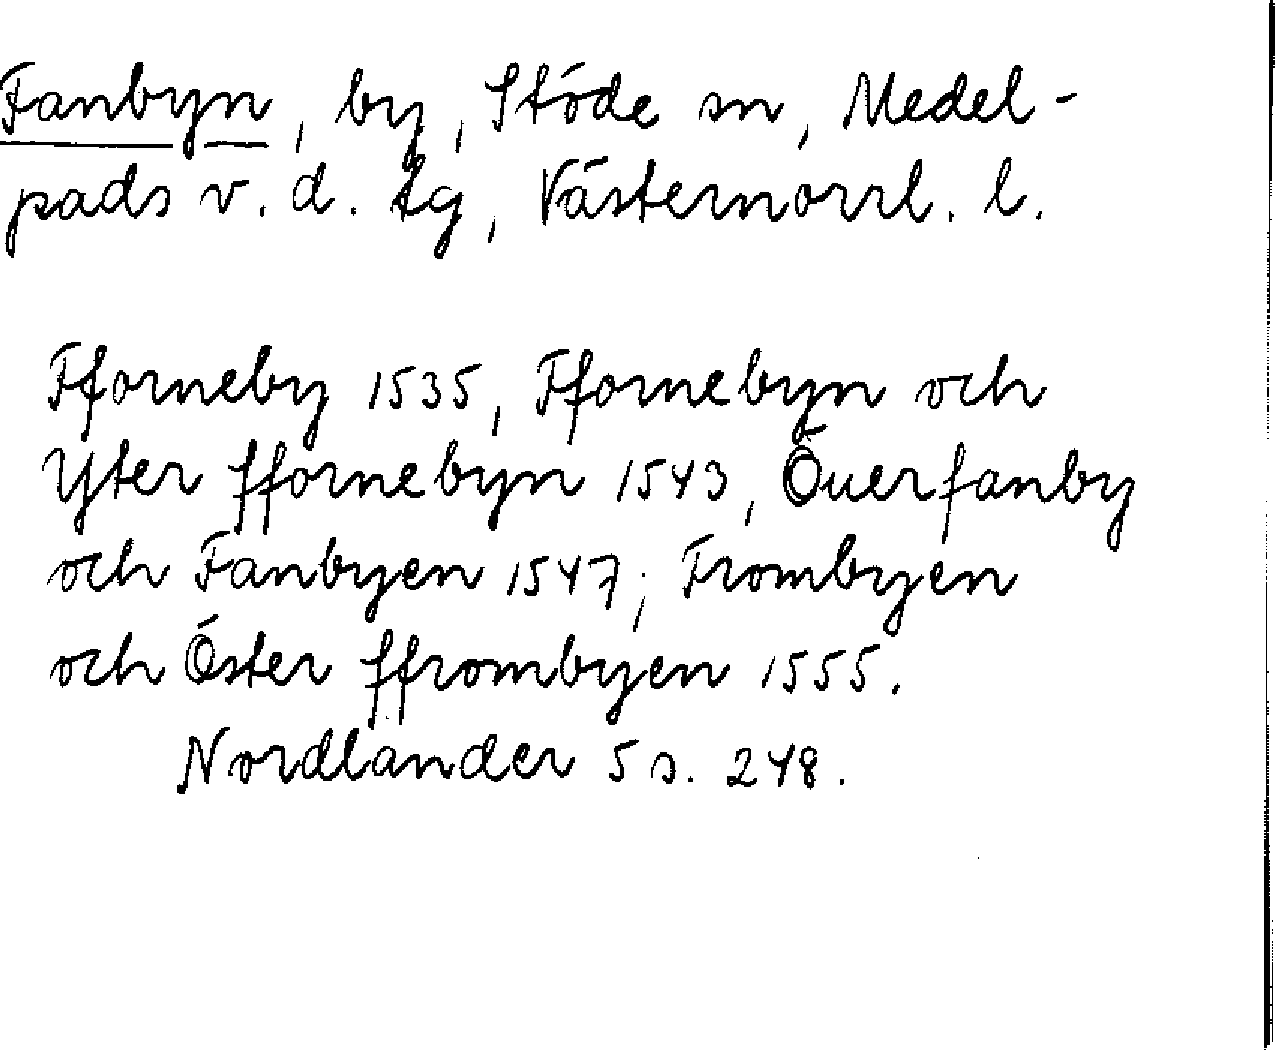 Fanbyn, by, Stöde sn, Medel-
pads v. d. tg, Västernorrl. l.
Fforneby 1535, Ffornebyn och
Yter ffornebyn 1543, Öuerfanby
och Fanbyen 1547; Frombyen
och Öster ffrombyen 1555.
Nordlander 5 s. 248.